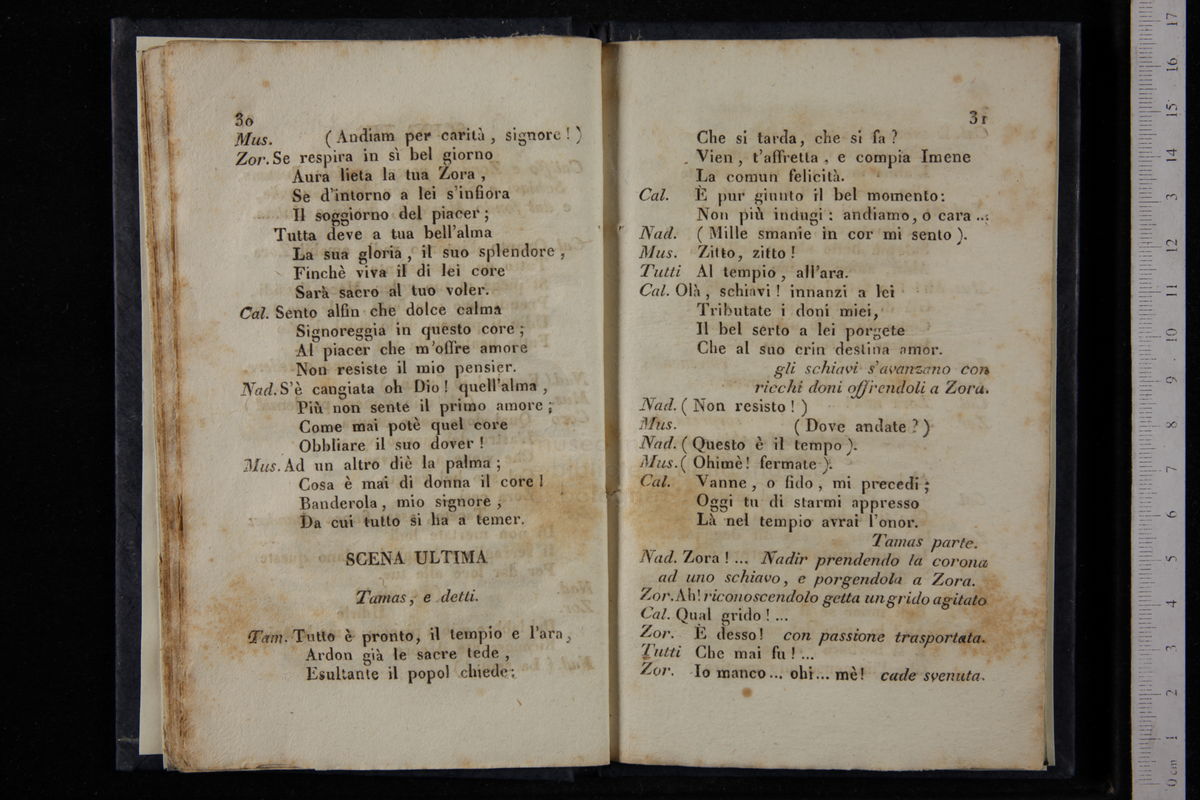 30
Mus. ( Andiam per carità , signore ! )
Zor. Se respira in sì bel giorno
Aura lieta la tua Zora ,
Se d'intorno a lei s'infiora
Il soggiorno del piacer ;
Tutta deve a tua bell'alma
La sua gloria , il suo splendore ,
Finchè viva il di lei core
Sarà sacro al tuo voler.
Cal. Sento alfin che dolce calma
Signoreggia in questo core ;
Al piacer che m'offre amore
Non resiste il mio pensier.
Nad. S'è cangiata oh Dio ! quell'alma ,
Più non sente il primo amore ;
Come mai potè quel core
Obbliare il suo dover !
Mus. Ad un altro diè la palma ;
Cosa è mai di donna il core !
Banderola , mio signore ,
Da cui tutto si ha a temer.
SCENA ULTIMA
Tamas, e detti.
Tam. Tutto è pronto, il tempio e l'ara,
Ardon già le sacre tede ,
Esultante il popol chiede :
31
Che si tarda, che si fa ?
Vien , t'affretta , e compia Imene
La comun felicità.
Cal. È pur giunto il bel momento :
Non più indugi : andiamo, o cara ..:
Nad. ( Mille smanie in cor mi sento ).
Mus. Zitto, zitto !
Tutti Al tempio , all'ara.
Cal. Olà , schiavi ! innanzi a lei
Tributate i doni miei,
Il bel serto a lei porgete
Che al suo crin destina amor.
gli schiavi s'avanzano con
ricchi doni offrendoli a Zora.
Nad. ( Non resisto ! )
Mus. ( Dove andate ? )
Nad. ( Questo è il tempo ).
Mus. ( Ohimè! fermate ).
Cal. Vanne , o fido , mi precedi ;
Oggi tu di starmi appresso
Là nel tempio avrai l'onor.
Tamas parte.
Nad. Zora ! ... Nadir prendendo la corona
ad uno schiavo , e porgendola a Zora.
Zor. Ah! riconoscendolo getta un grido agitato
Cal. Qual grido ! ...
Zor. È desso ! con passione trasportata.
Tutti Che mai fu ! ...
Zor. Io manco ... ohi ... mè ! cade svenuta.
17
16
15
14
13
12
11
10
9
8
7
6
5
4
3
2
1
0 cm